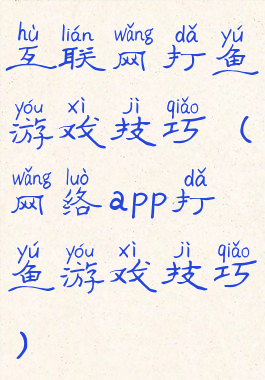 hù lián wǎng dǎ yú
互联网打鱼
yóu xì jì qiǎo
游戏技巧（
wǎng luò dǎ
网络app打
yú yóu xì jì qiǎo
鱼游戏技巧
）